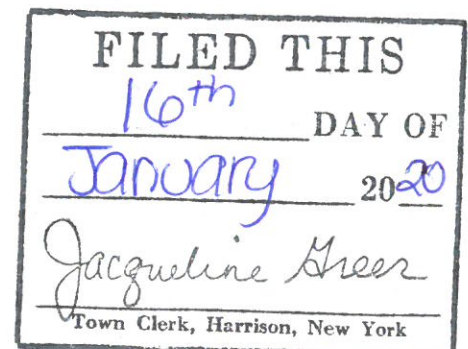 FILED THIS
16th
DAY OF
January 2020
Jacqueline Greer
Town Clerk, Harrison, New York